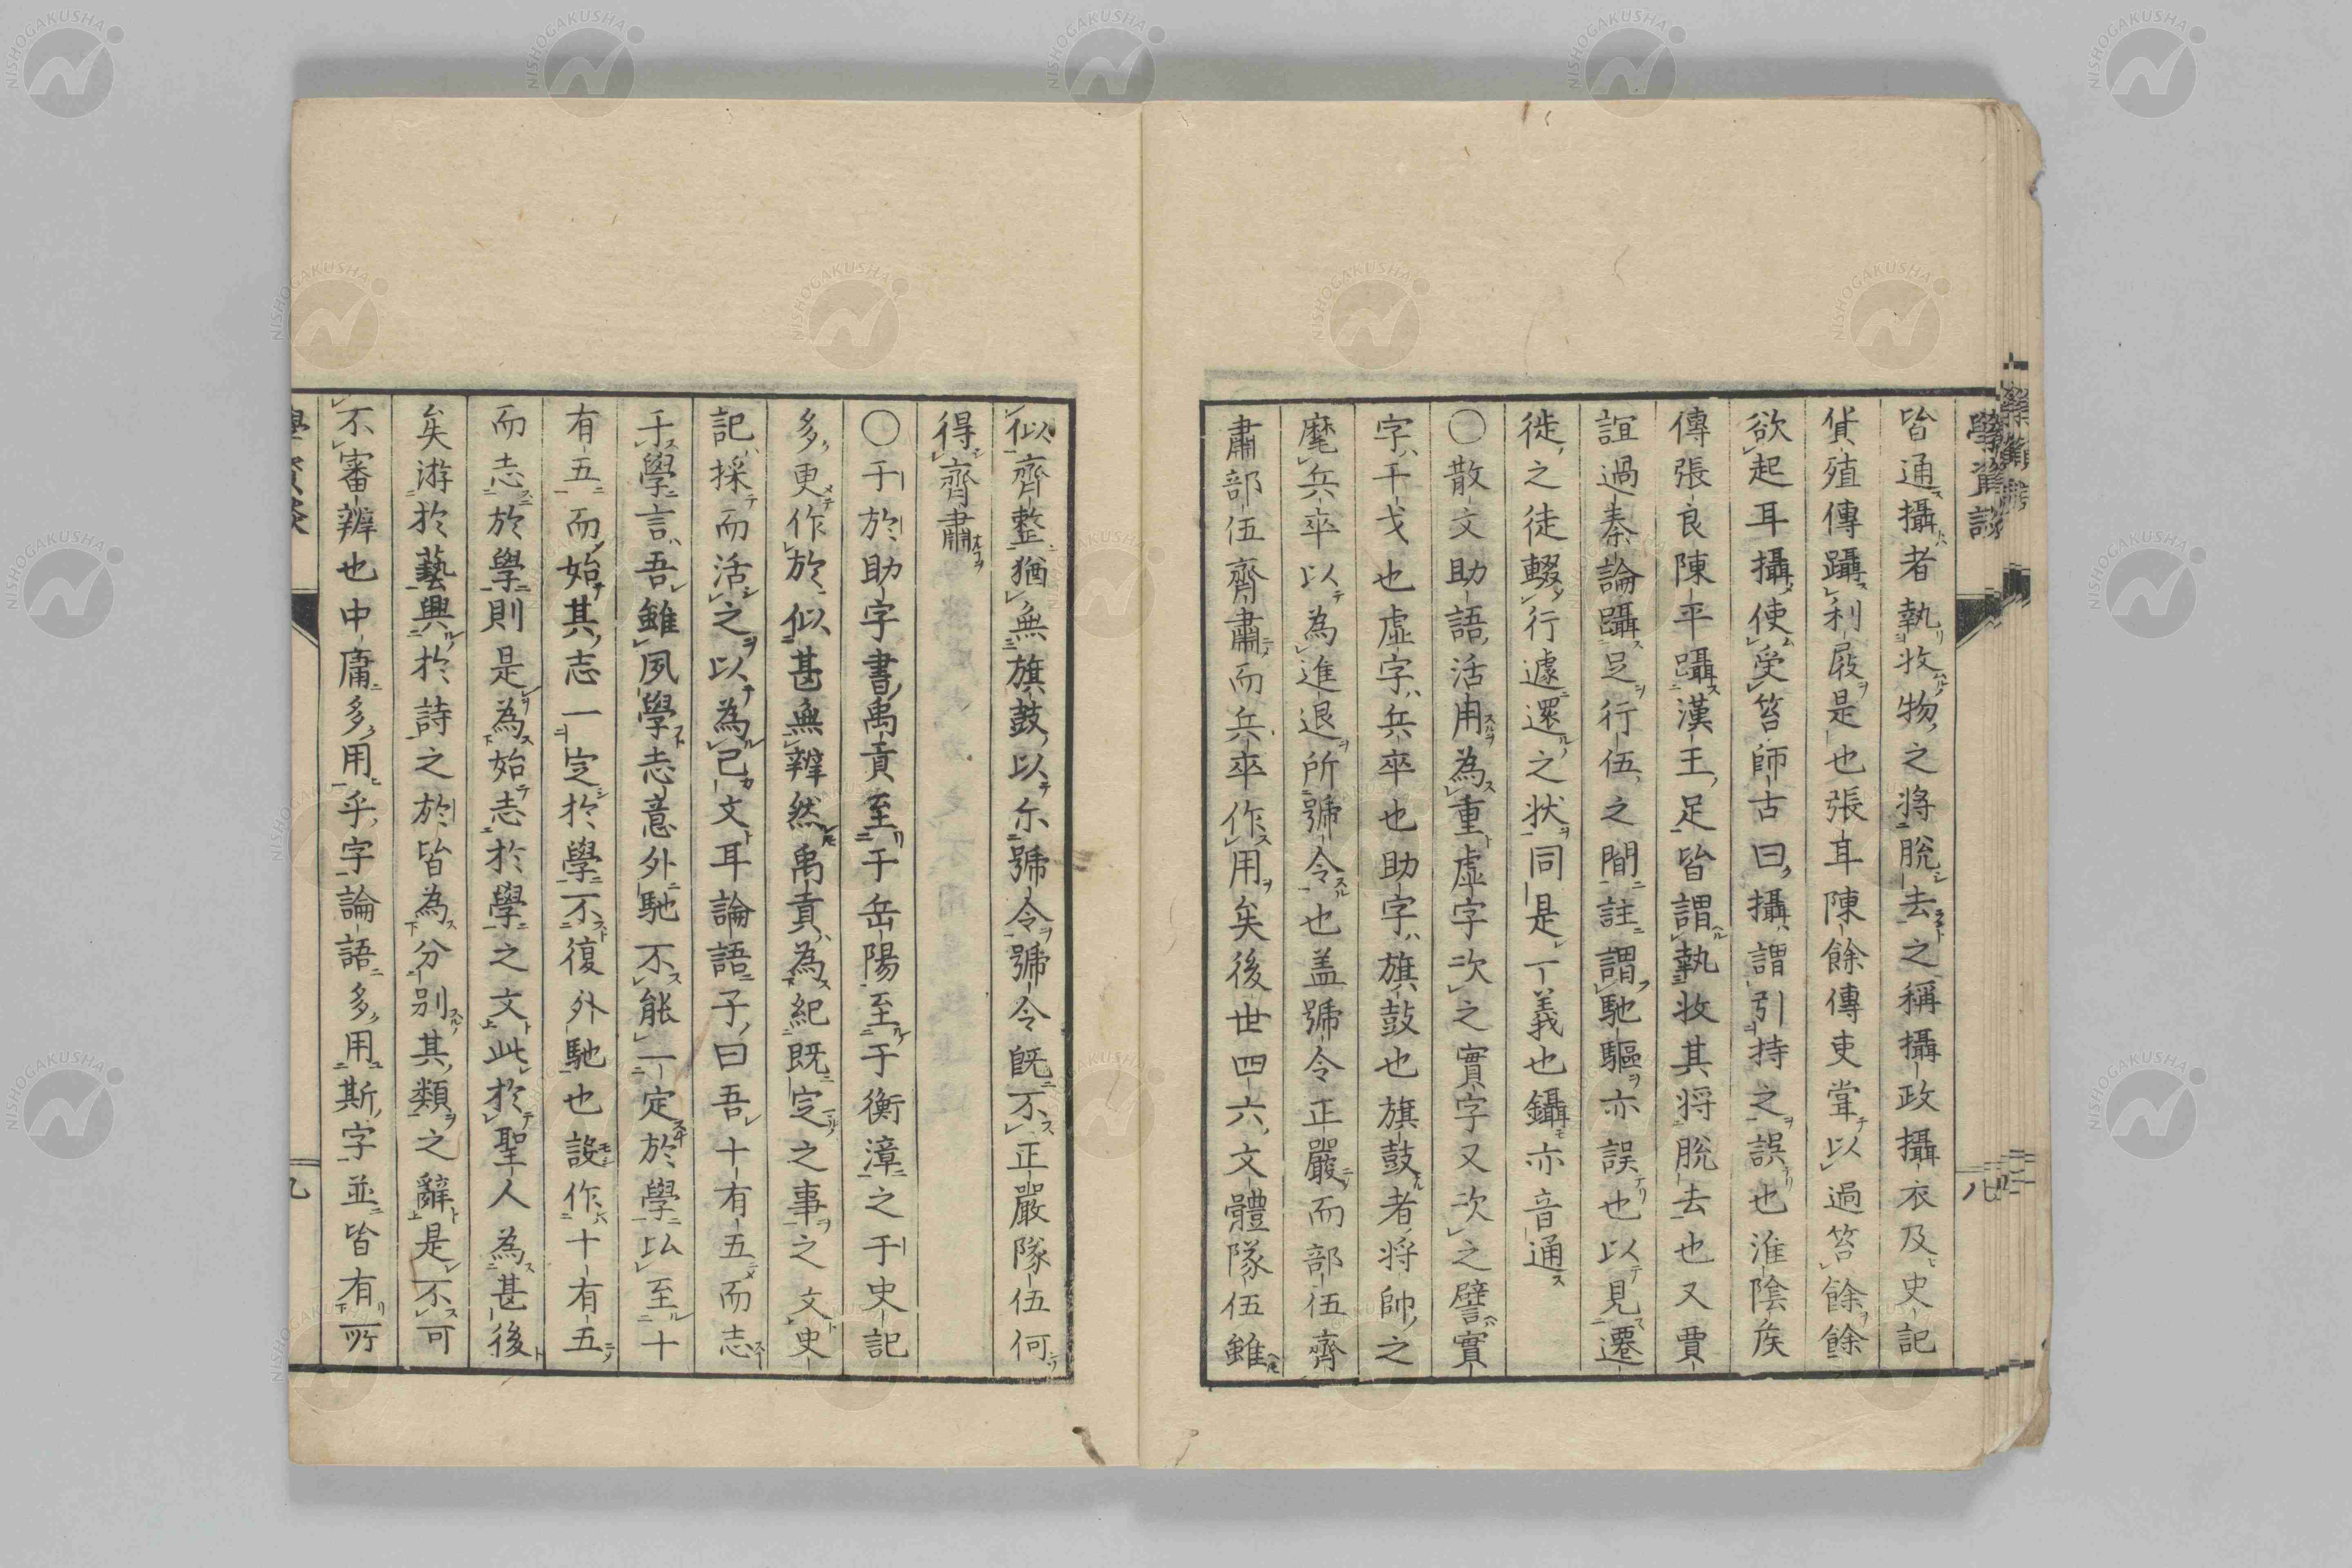 學資談
皆通攝者執收物之將脫去之稱攝政攝衣及史記
貨殖傳躡利屐是也張耳陳餘傳吏甞以過笞餘餘
欲起耳攝使受笞師古曰攝謂引持之誤也淮陰侯
傳張良陳平躡漢王足皆謂執收其將脫去也又賈
誼過秦論躡足行伍之間註謂馳驅亦誤也以見遷
徙之徒輟行遽還之状同是一義也鑷亦音通
〇散文助語活用為重虛字次之實字又次之譬實
字干戈也虛字兵卒也助字旗鼓也旗鼓者將帥之
麾兵卒以為進退所號令也盖號令正嚴而部伍齊
肅部伍齊肅而兵卒作用矣後世四六文體隊伍雖
八
似齊整猶無旗鼓以尓號令號令旣不正嚴隊伍何
得齊肅
〇于於助字書禹貢至于岳陽至于衡漳之于史記
多更作於似甚無辨然禹貢為紀既定之事之文史
記採而活之以為己文耳論語子曰吾十有五而志
于學言吾雖夙學志意外馳不能一定於學以至十
有五而始其志一定於學不復外馳也設作十有五
而志於學則是為始志於學之文此於聖人為甚後
矣游於藝興於詩之於皆為分別其類之辭是不可
不審辨也中庸多用乎字論語多用斯字並皆有所
九
NISHOGAKUSHA